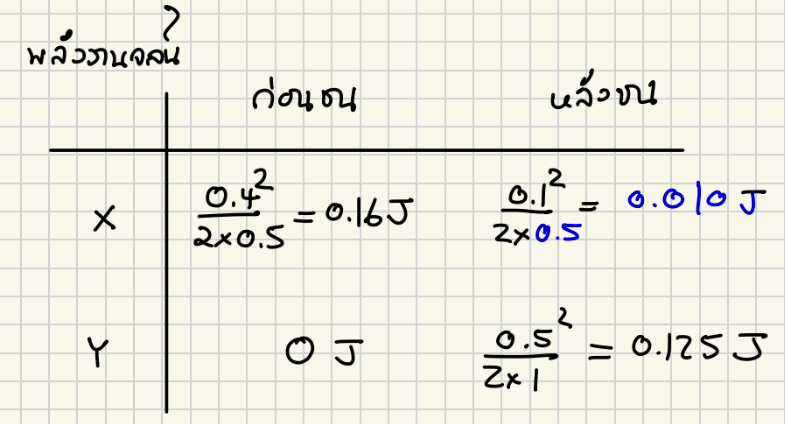 พลังงานจลน์
ก่อนชน หลังชน
X 0.4²/2×0.5 = 0.16 J 0.1²/2×0.5 = 0.010 J
Y 0 J 0.5²/2×1 = 0.125 J